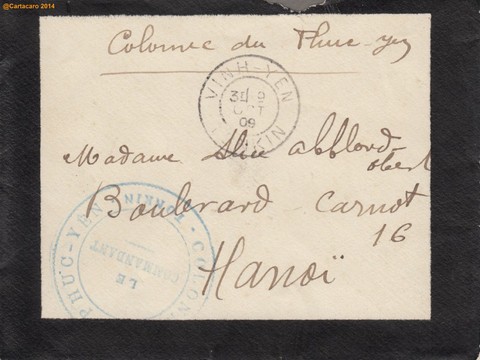 @Cartacaro 2014
Colonne du Phuc-yen
VINH-YEN
OCT
09
TONKIN
Madame
Boulevard Carnot
16
Hanoï
PHUC-YÊN TONKIN COLONNE
LE
COMMANDANT